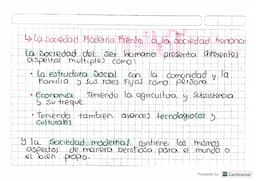 ↳ La Sociedad Moderna frente a la Sociedad humana
La Sociedad del Ser humano presenta diferentes
aspectos multiples como:
• La estructura Social con la comunidad y la
familia y sus roles fijos como persona
• Economia Teniendo la agricultura y subsistencia
y su treque
• Teniendo tambien avances tecnologicos y
culturales
Y la Sociedad moderna contiene los mismos
aspectos de manera benificosa para el mundo o
el bien propio.
Powered by CamScanner